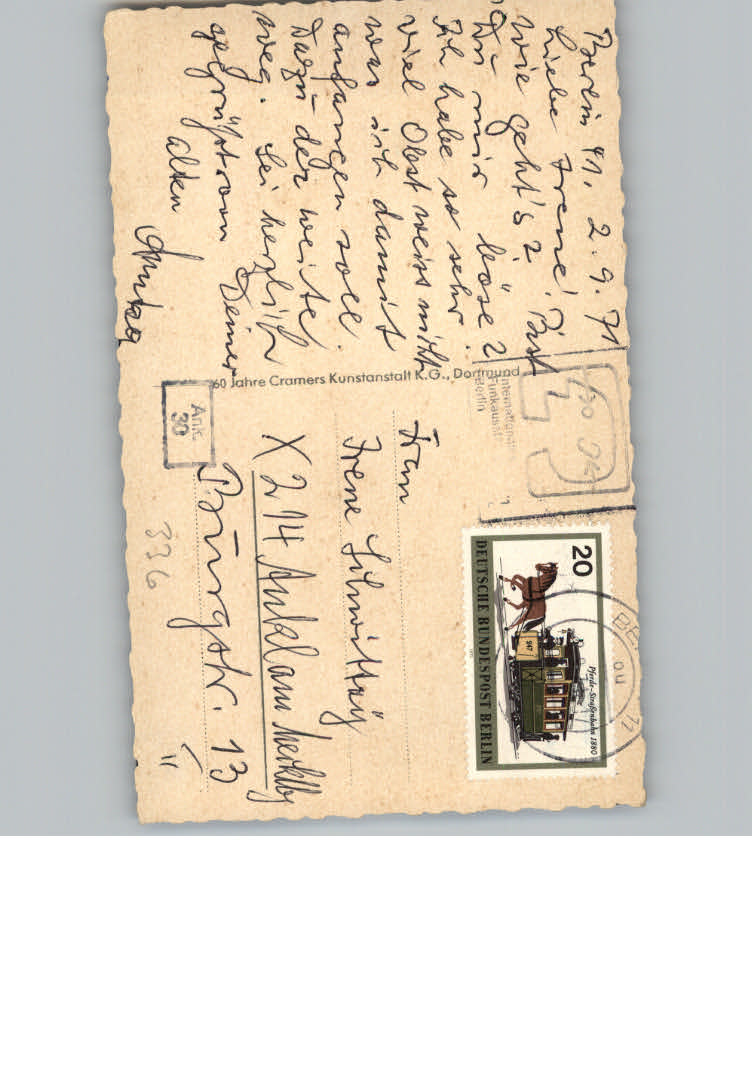 Berlin 41, 2. 9. 71
Liebe Irene! Bist
Du mir böse?
Wie geht's?
Ich habe so sehr
viel Obst weiss nicht
was ich damit
anfangen soll.
Dazu der weite
Weg. Sei herzlich
gegrüßt von Deiner
alten
60 Jahre Cramers Kunstanstalt K.G., Dortmund
Internationale
Funkausst
Berlin
Frau
Irene
X 214 Anklam Mecklbg
Burgstr. 13
Ank.
30
336
20
Pferde-Straßenbahn 1880
DEUTSCHE BUNDESPOST BERLIN